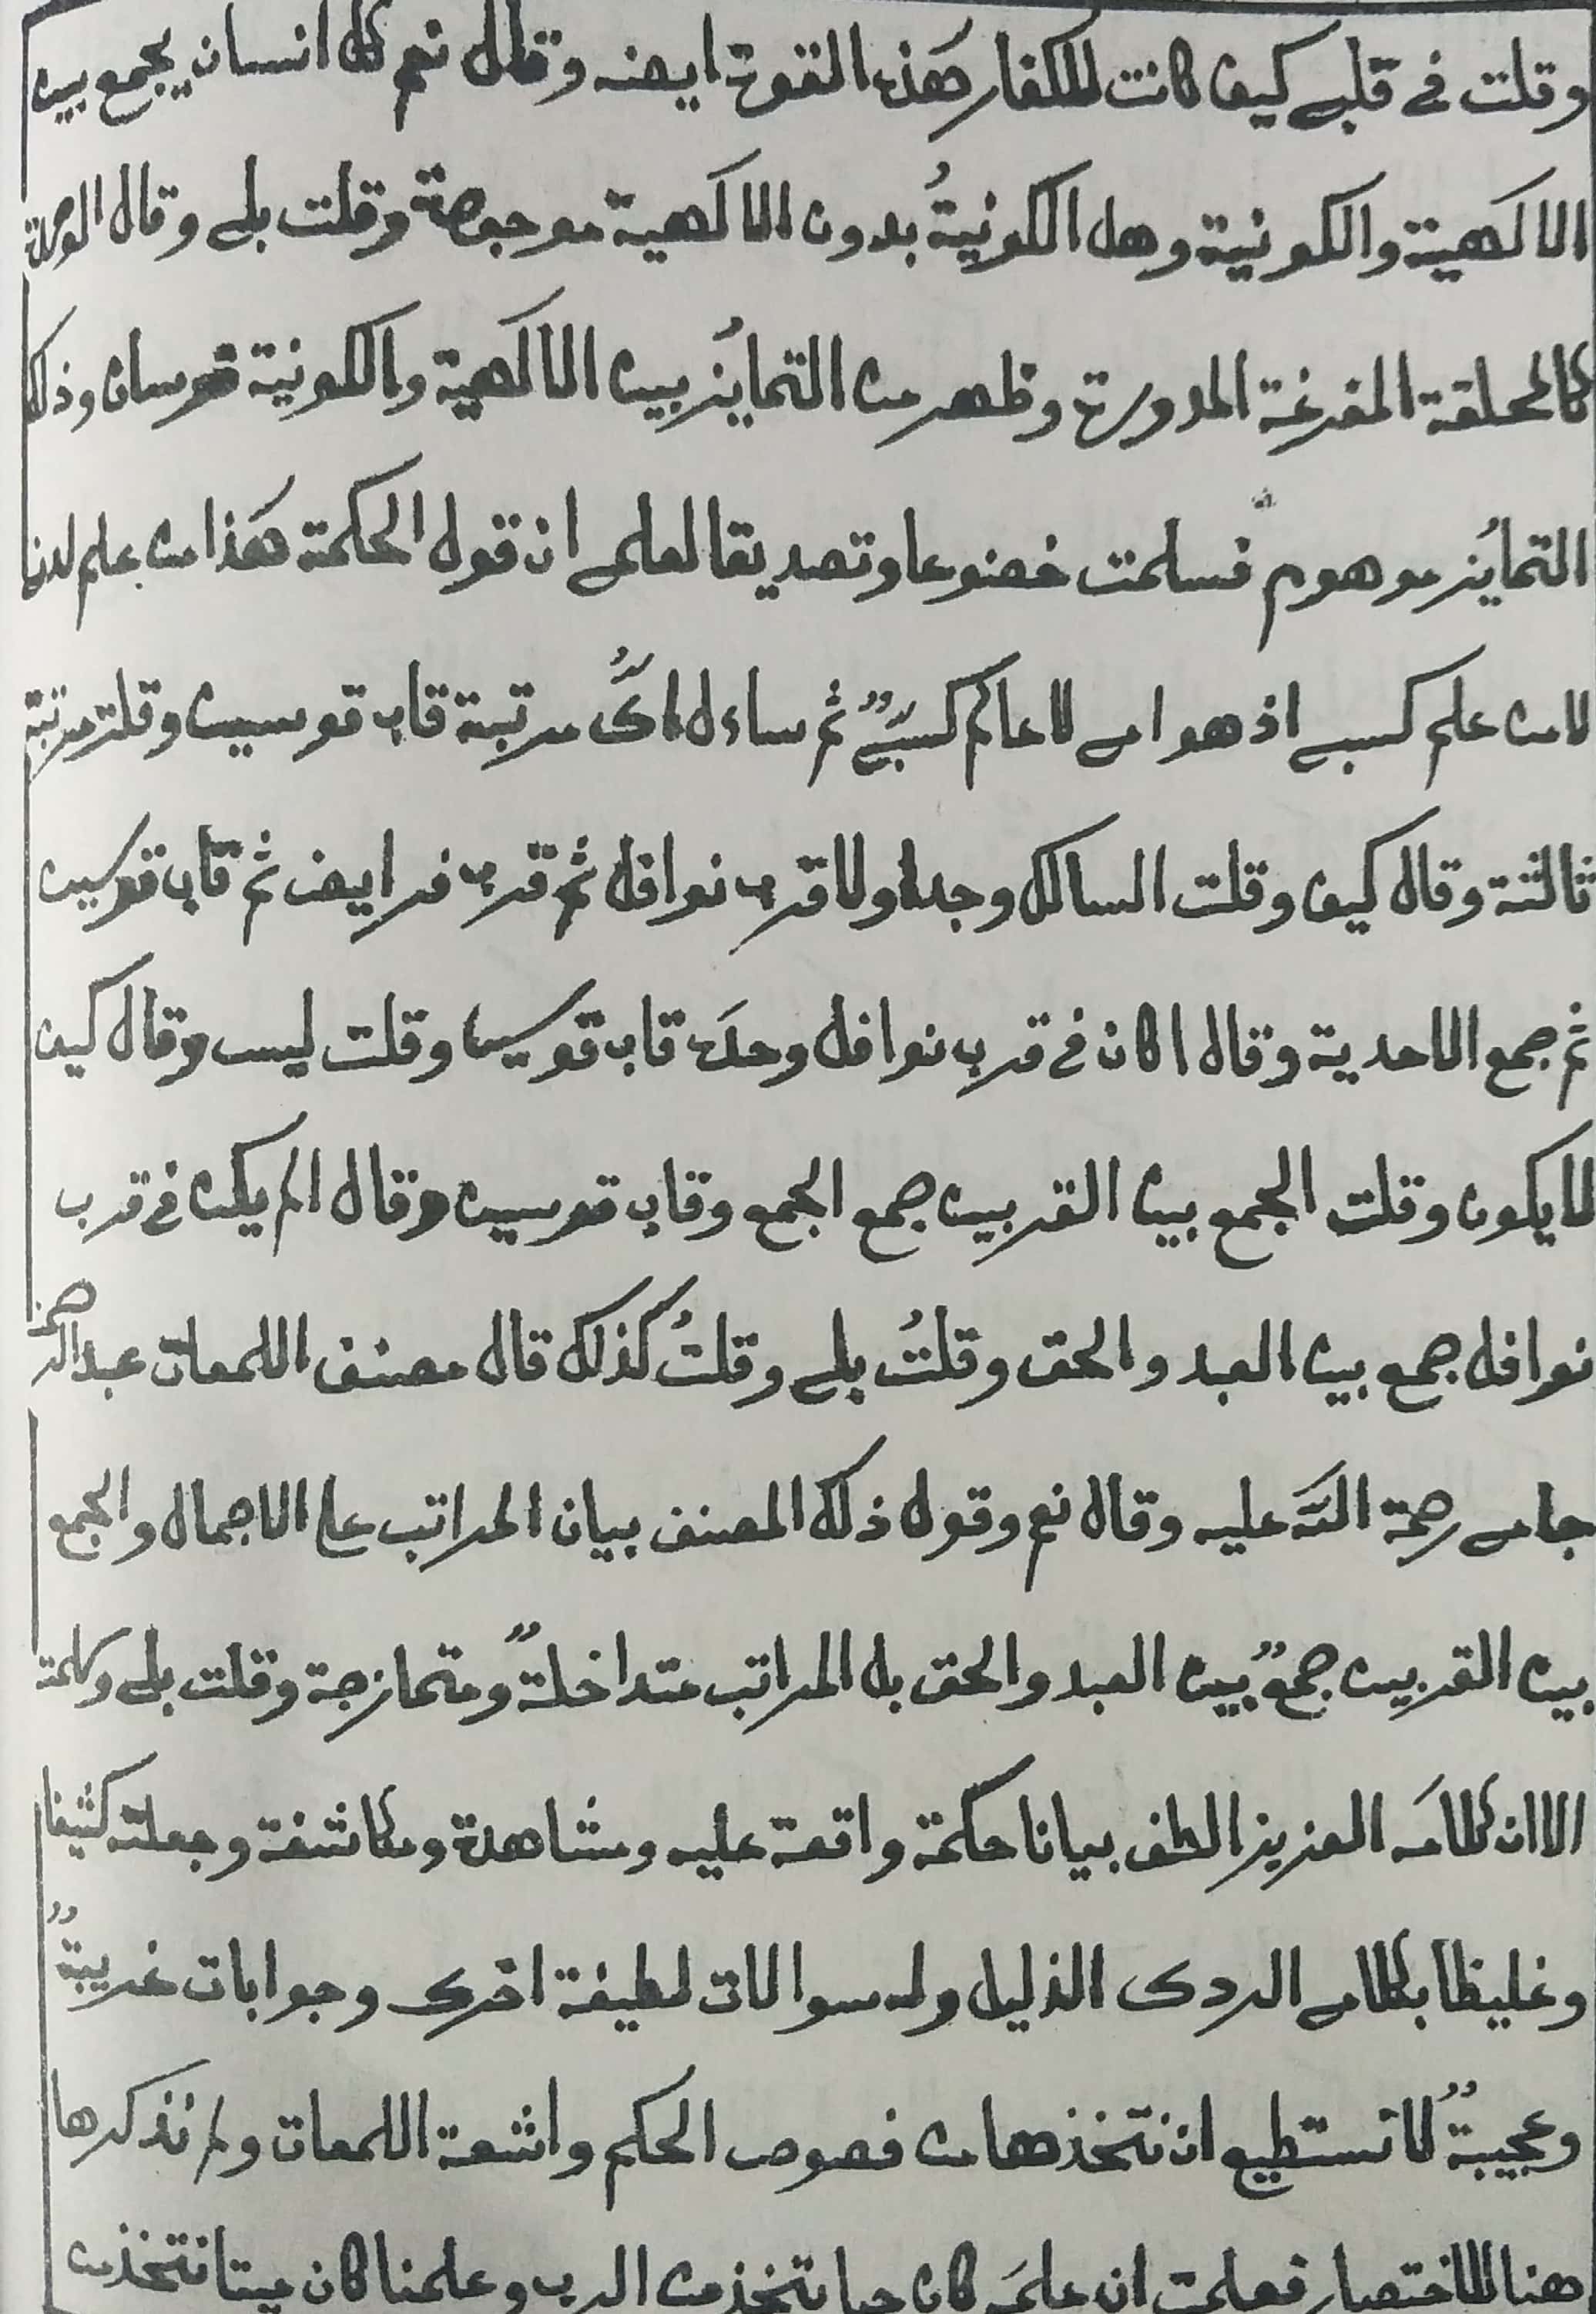 وقلت فى قلبى كيف كانت للكفار هذه القوة ايضه وقال نعم كل انسان يجمع بين
الالٰهية والكونية وهل الكونيةُ بدون الالٰهية موجوهة وقلت بلى وقال
كالحلقة المفرغة المدورة وظهر من التمايُز بين الالٰهية والكونية قوسان وذلك
التمايُز موهوم فسلمت خضوعا وتصديقا لعلمى ان قول الحكمة هٰذا من علم لدنا
لامن علم كسبى اذ هو امى لا عالم كسبىٌّ ثم ساءل اىُّ مرتبة قاب قوسين وقلت مرتبة
ثالثة وقال كيف وقلت السالك وجد اولا قرب نوافل ثم قرب فرايض ثم قاب قوسين
ثم جمع الاحدية وقال اكان فى قرب نوافل وحدَه قاب قوسين وقلت ليس وقال كيف
لايكون وقلت الجمع بين القربين جمع الجمع وقاب قوسين وقال الم يكن فى قرب
نوافل جمع بين العبد والحق وقلتُ بلى وقلتُ كذلك قال مصنف اللمعات عبد الرحمن
جامى رحمة اللّٰه عليه وقال نعم وقول ذلك المصنف بيان المراتب على الاجمال والجمع
بين القربين جمعٌ بين العبد والحق بل المراتب متداخلةٌ ومتمازجة وقلت بلى وكلمة
الاان كلامَه العزيز الطف بيانا حكمة واقعة عليه ومشاهدة ومكاشفة وجعلته كثيفا
وغليظا بكلامى الردى الذليل وله سوالات لطيفة اخرى وجوابات غريبةٌ
وعجيبةٌ لا نستطيع ان نتخذها من فصوص الحكم واشعة اللمعات ولم نذكرها
هنا للاختصار فعلمت ان علمَه كان حيا يتخذ من الرب وعلمنا كان ميتا نتخذ من